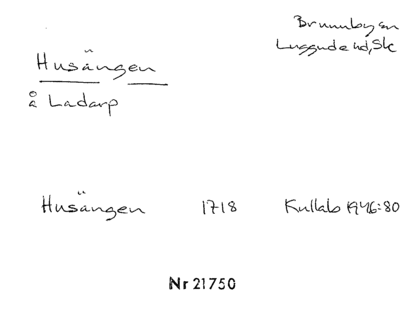 Brunnby sn
Luggude hd, Sk
Husängen
å Ladarp
Husängen 1718 Kullab 1946:80
Nr 21750